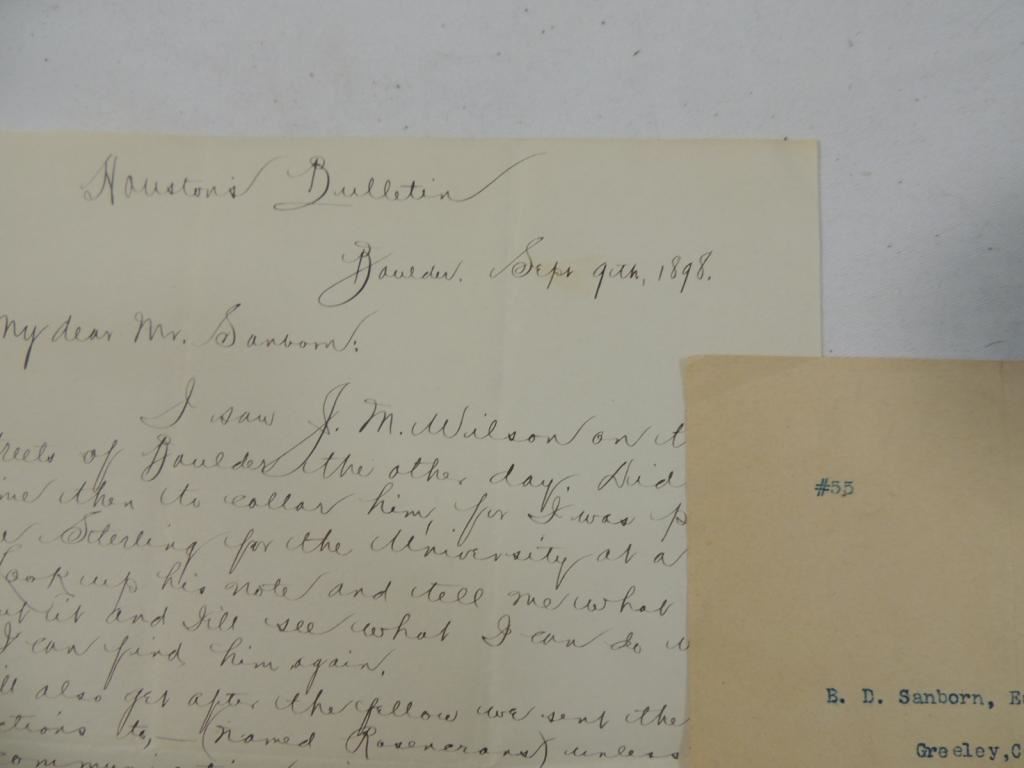 Houston's Bulletin
Boulder. Sept 9th, 1898.
My dear Mr. Sanborn:
I saw J. M. Wilson on t
reets of Boulder the other day. Did
me then to collar him, for I was p
Sterling for the University at a
Look up his note and tell me what
ut it and I'll see what I can do w
I can find him again.
ll also get after the fellow we sent the
ctions to, — (named Rosencrans) unless
#55
B. D. Sanborn, Es
Greeley, C